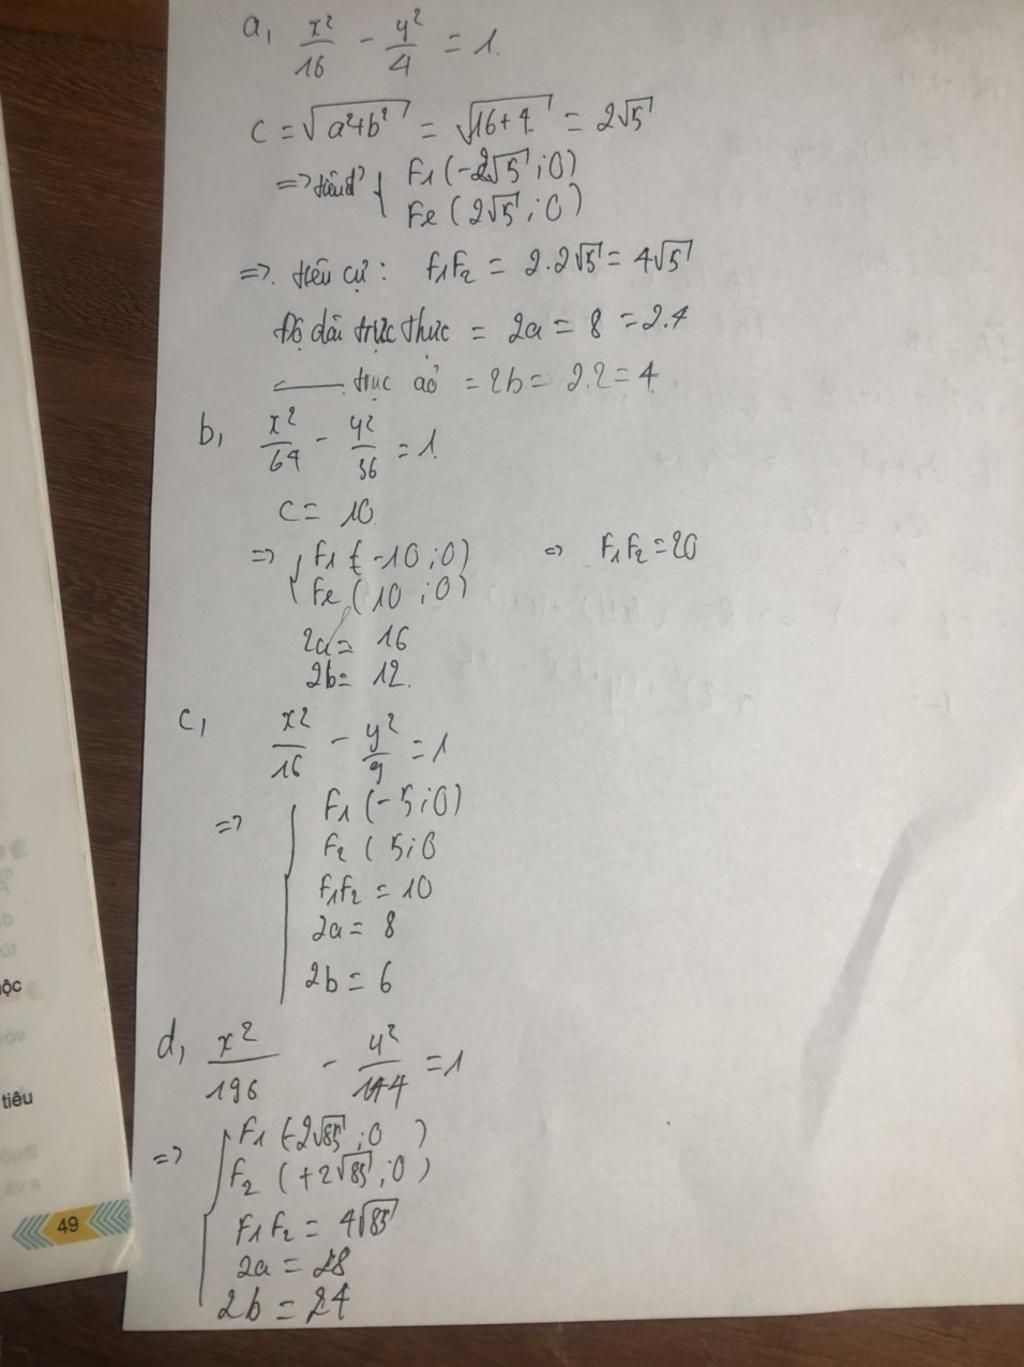 a, x²/16 - y²/4 = 1.
c = √(a²+b²) = √(16+4) = 2√5
=> tiêu đ' { F1 (-2√5 ; 0)
F2 ( 2√5 ; 0 )
=> tiêu cự : F1F2 = 2.2√5 = 4√5
Độ dài trục thực = 2a = 8 = 2.4
——— trục ảo = 2b = 2.2 = 4
b, x²/64 - y²/36 = 1.
c = 10
=> { F1 (-10 ; 0) => F1F2 = 20
F2 (10 ; 0)
2a = 16
2b = 12.
c, x²/16 - y²/9 = 1
=> { F1 (-5 ; 0)
F2 ( 5 ; 0
F1F2 = 10
2a = 8
2b = 6
d, x²/196 - y²/144 = 1
=> { F1 (-2√85 ; 0 )
F2 ( +2√85 ; 0 )
F1F2 = 4√85
2a = 28
2b = 24
ộc
tiêu
49